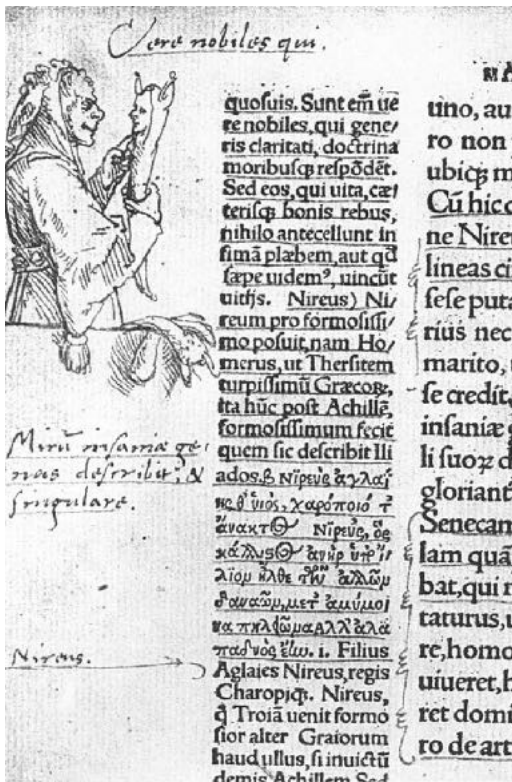 Vere nobiles qui.
quosuis. Sunt em̄ ue
re nobiles, qui gene/
ris claritati, doctrina
moribusq; respōdēt.
Sed eos, qui uita, cæt
terisq; bonis rebus,
nihilo antecellunt in
fimā plæbem, aut qd
sæpe uidemꝰ, uincūt
uitijs. Nireus) Ni/
reum pro formosissi/
mo posuit, nam Ho/
merus, ut Thersitem
turpissimū Græcoꝝ,
ita hūc post Achillē,
formosissimum fecit
quem sic describit Ili
ados.β Νιρεὺς ἀγλαΐ
ης θ᾽ υἱὸς, χαρόποιό τ᾽
ἄνακτος Νιρεὺς, ὃς
κάλλιστος ἀνὴρ ὑπὸ ἴ/
λιον ἦλθε τῶν ἄλλων
δαναῶν, μετ᾽ ἀμύμο
να πηλείωνα ΑΛΛ᾽ ἀλα
παδνὸς ἔην. i. Filius
Aglaies Nireus, regis
Charopiq;. Nireus,
q̄ Troiā uenit formo
sior alter Graiorum
haud ullus, si inuictū
demis Achillem Sed
Mirū insaniæ ge-
nus describit, &
singulare.
Nireus.
MA
uno, au
ro non
ubiq; m
Cū hic c
ne Nireu
lineas ci
sese puta
rius nec
marito,
se credit,
insaniæ
li suoꝝ d
gloriant
Senecam
lam quā
bat, qui r
taturus, u
re, homo
uiueret, h
ret domi
ro de art